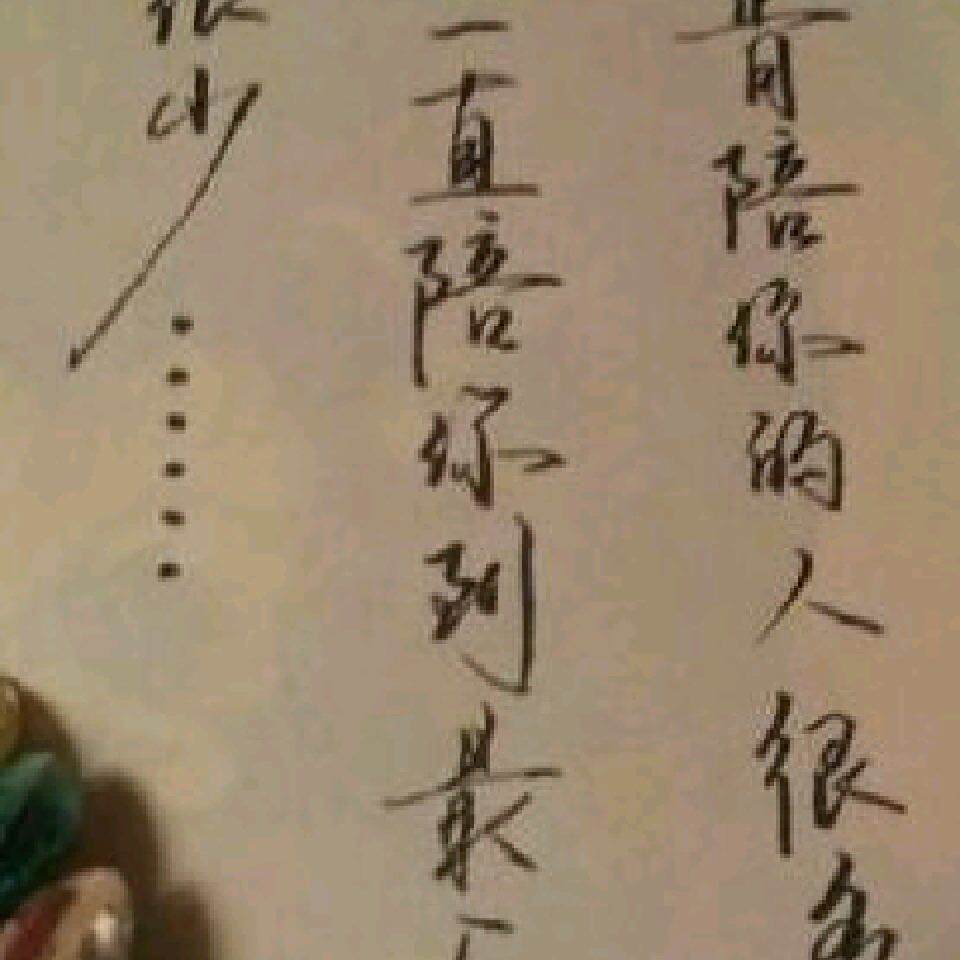 肯陪你的人很多
一直陪你到最
很少……